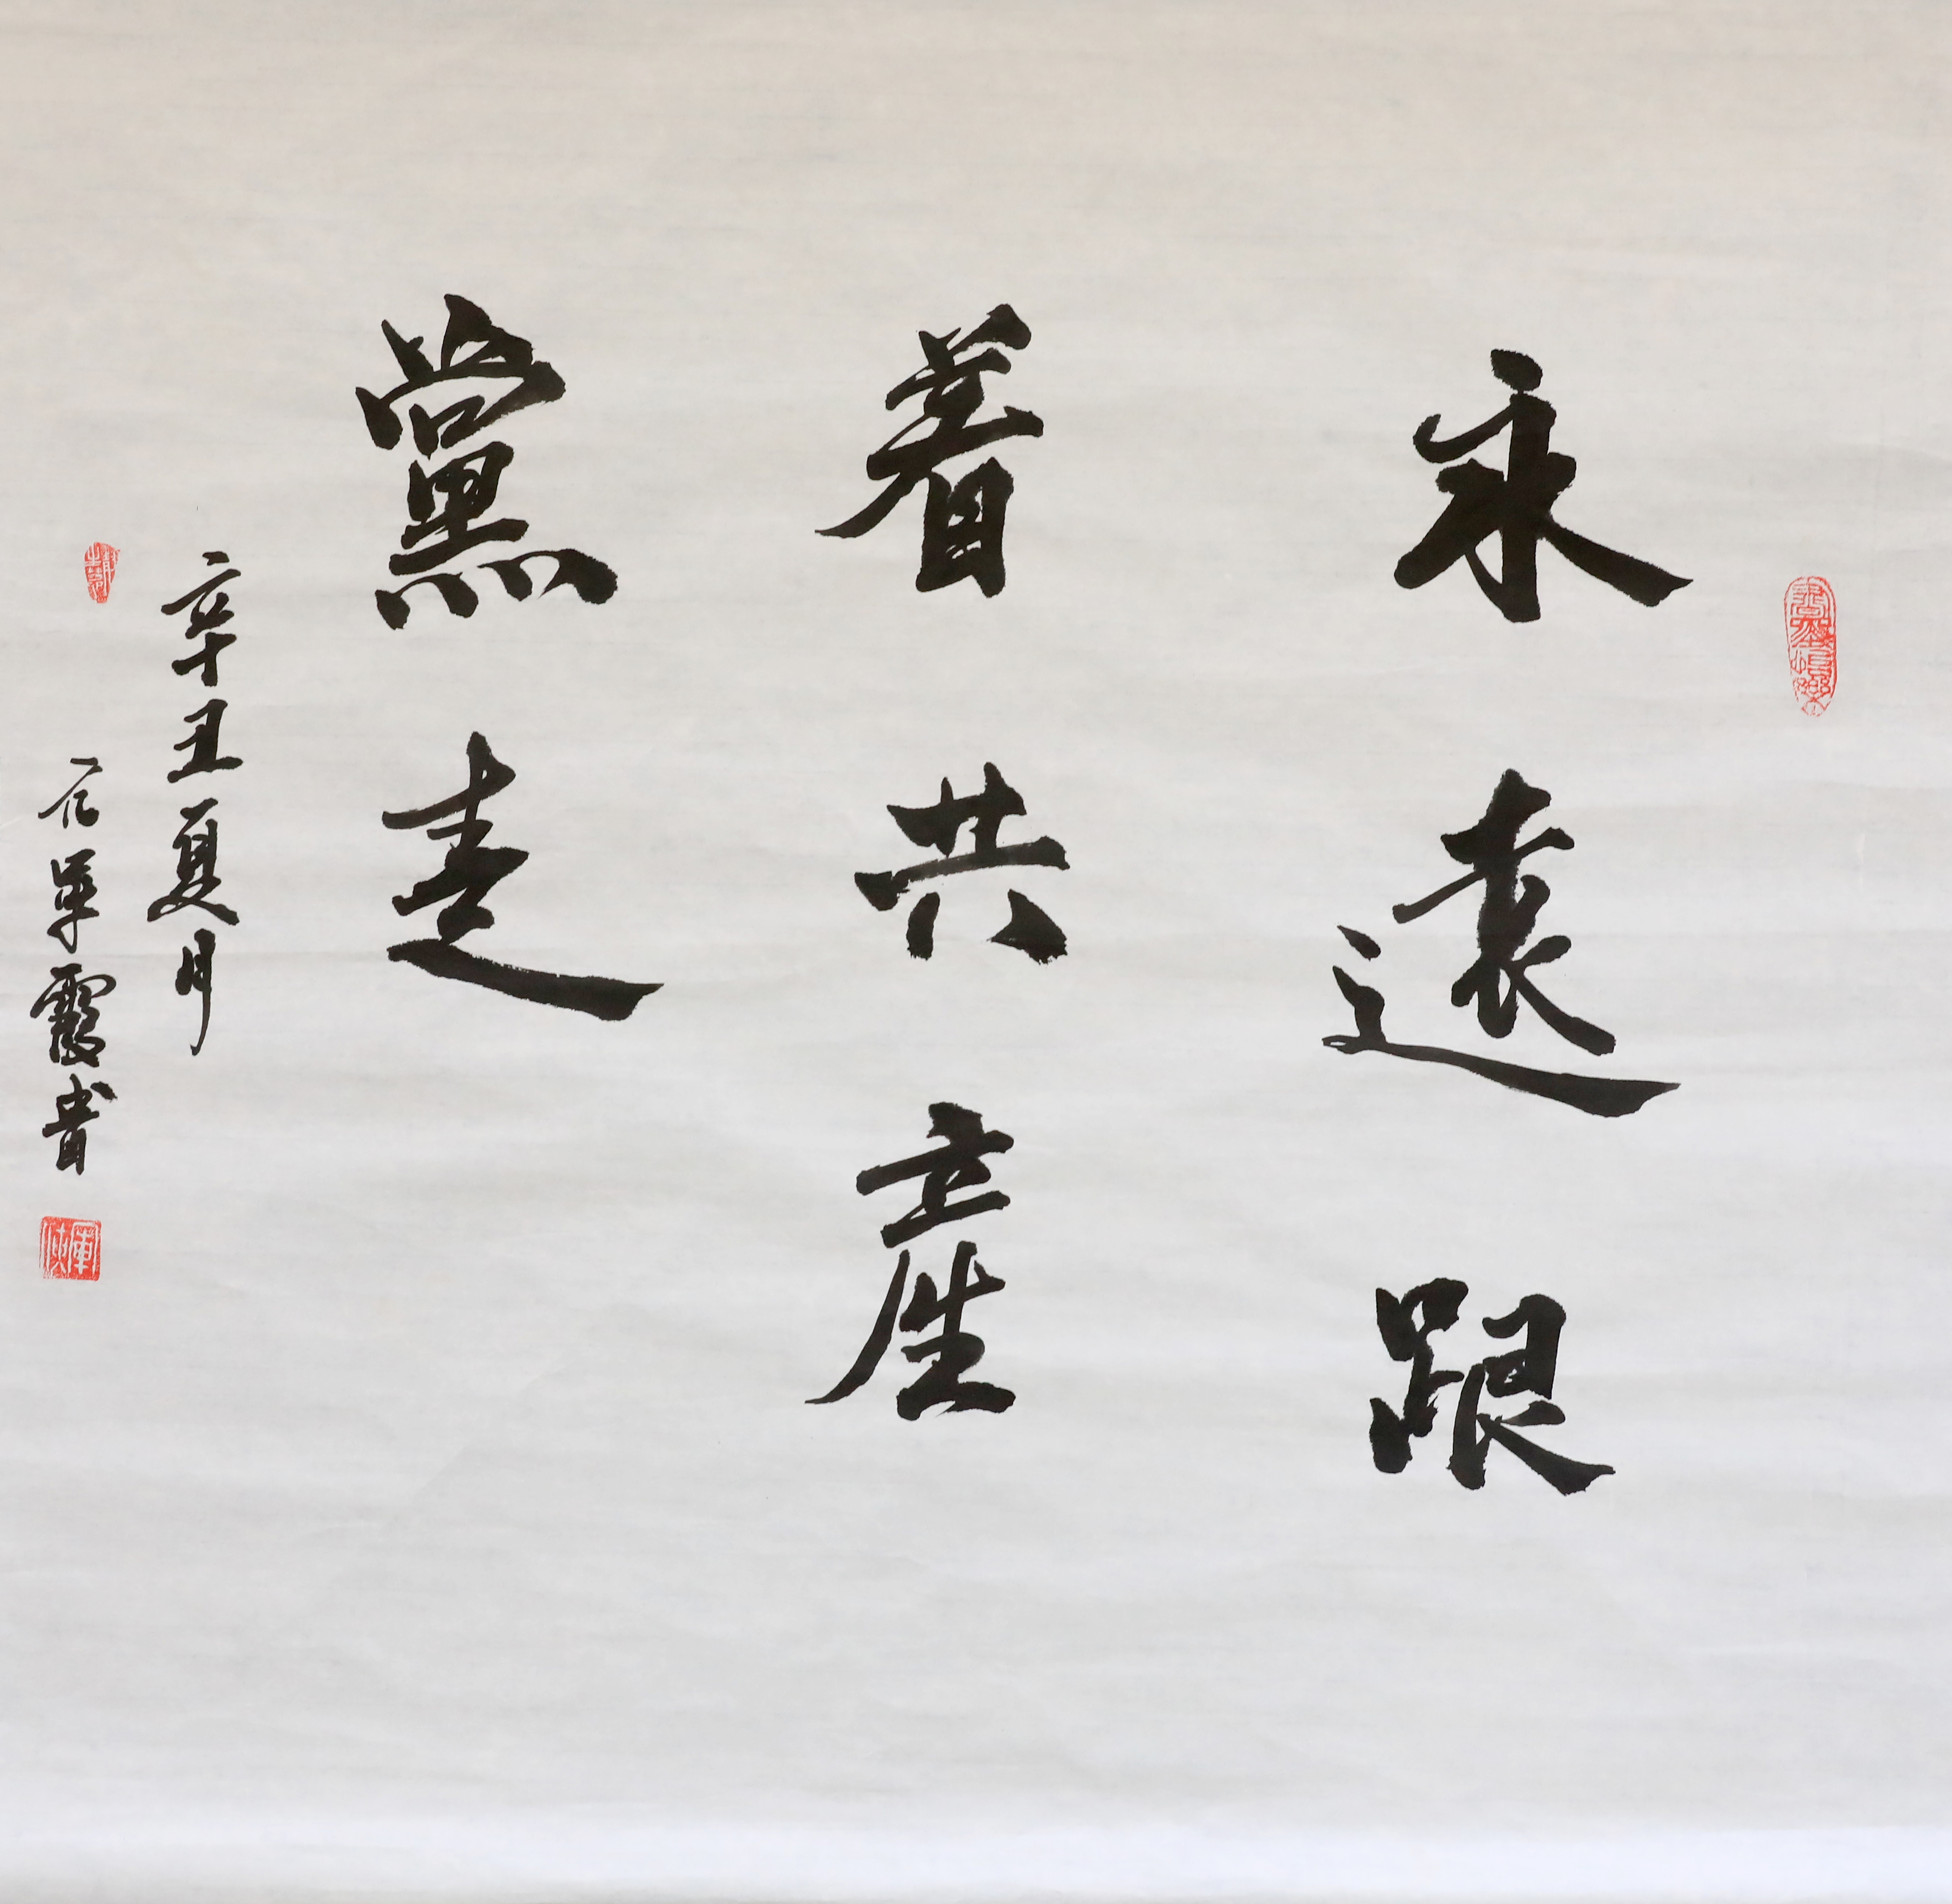 永遠跟
着共產
黨走
辛丑夏月
單霞書